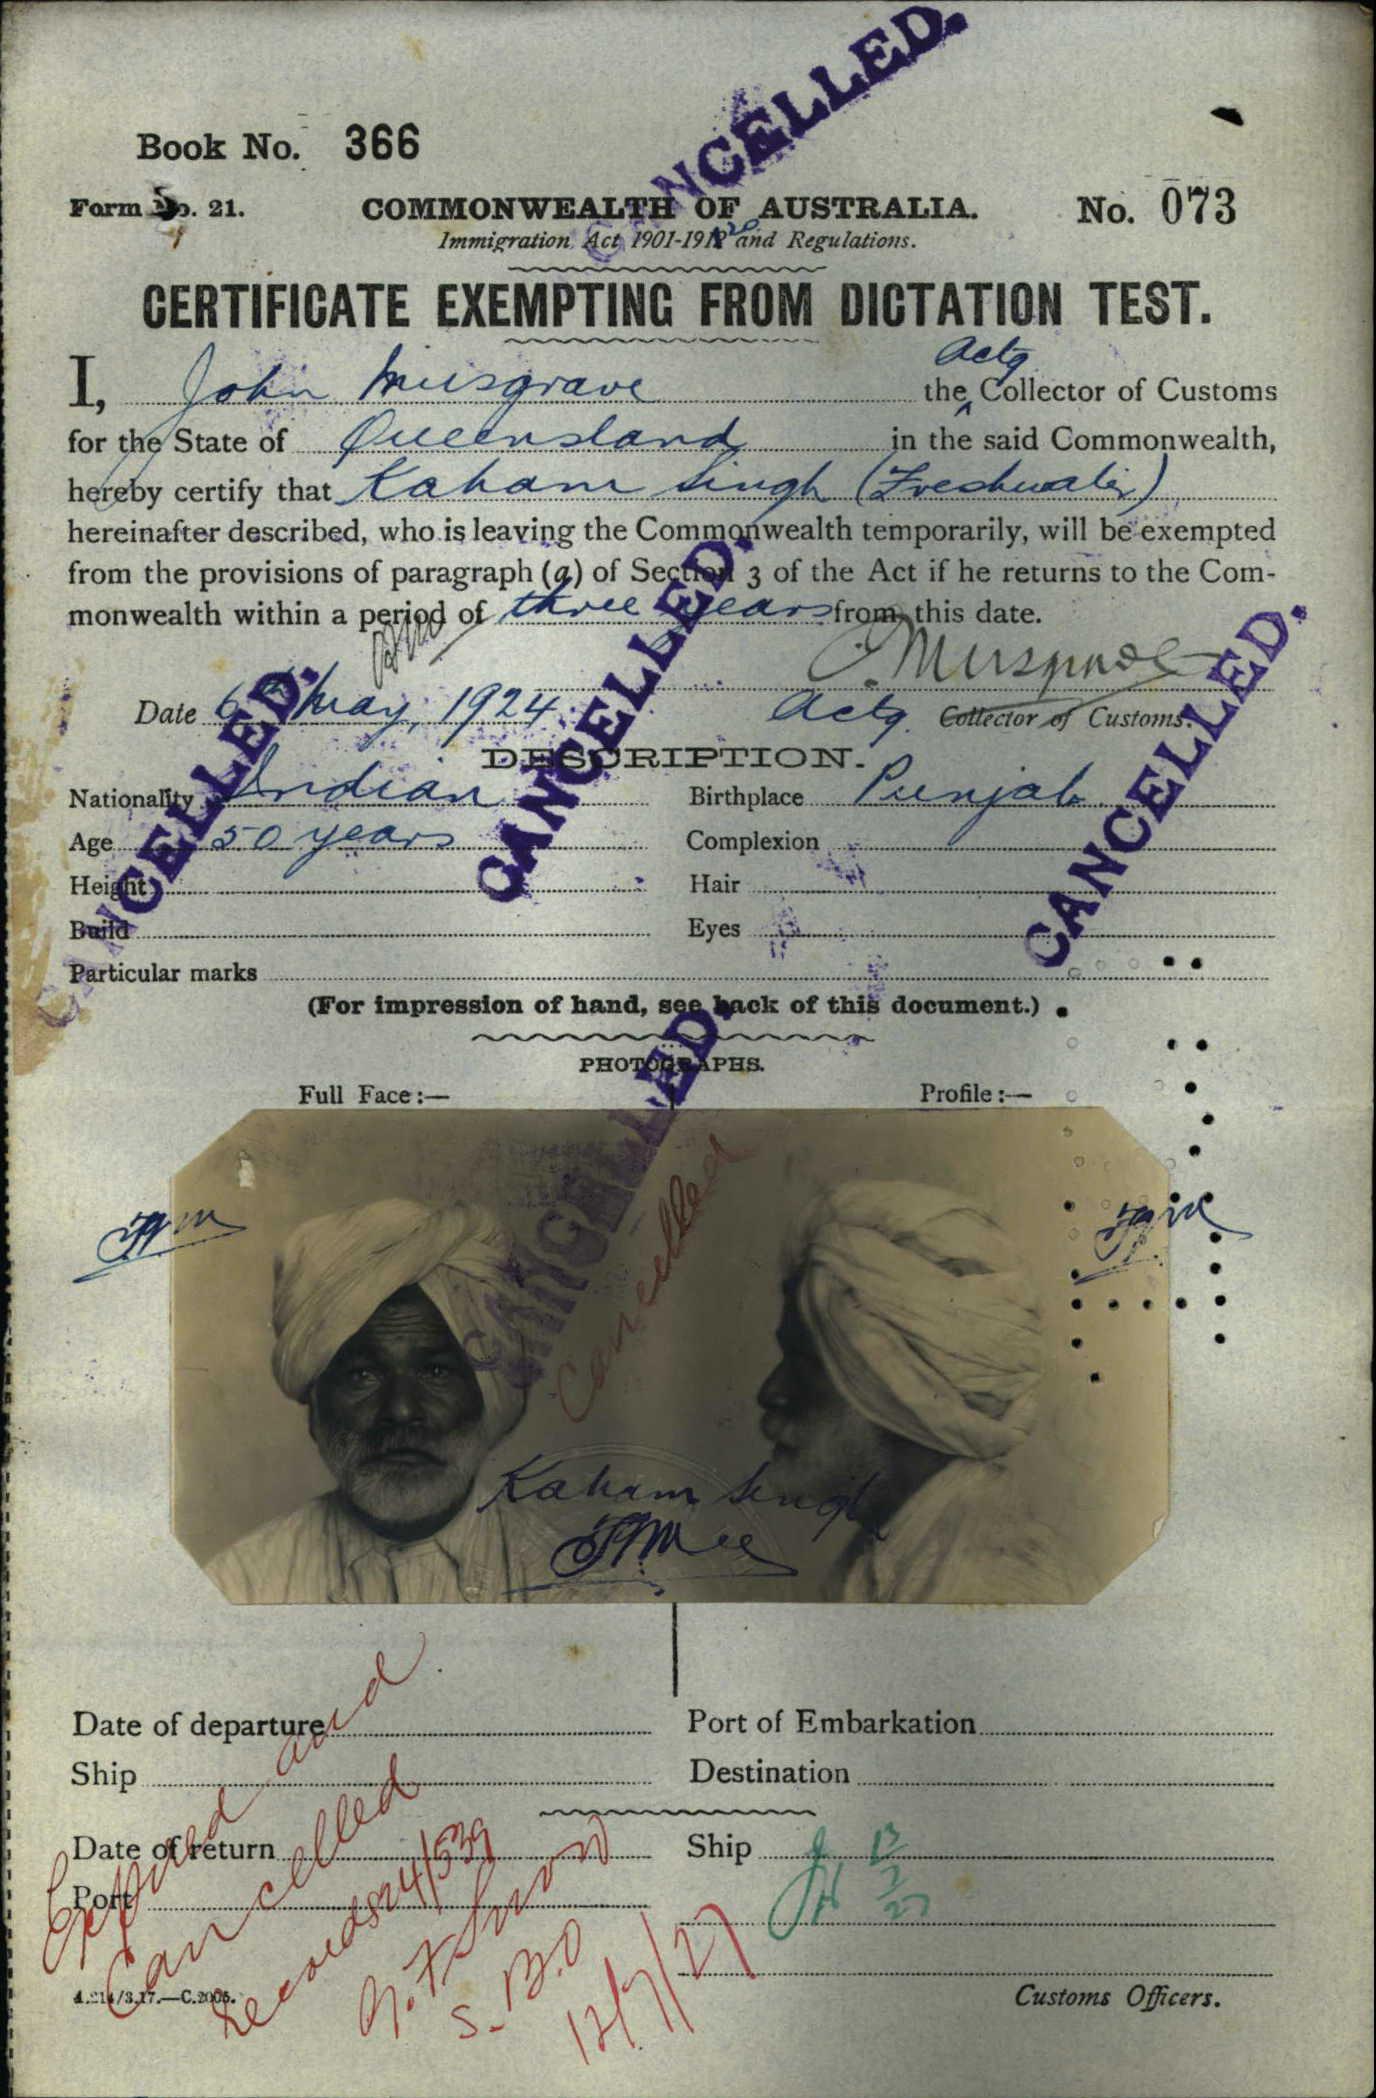 CANCELLED.
Book No. 366
Form No. 21.
COMMONWEALTH OF AUSTRALIA.
No. 073
Immigration Act 1901-1920 and Regulations.
CERTIFICATE EXEMPTING FROM DICTATION TEST.
I, John Musgrave the Actg Collector of Customs
for the State of Queensland in the said Commonwealth,
hereby certify that Kaham Singh (Freshwater)
hereinafter described, who is leaving the Commonwealth temporarily, will be exempted
from the provisions of paragraph (a) of Section 3 of the Act if he returns to the Com-
monwealth within a period of three years from this date.
Musgrave
Date 6th May, 1924
Actg. Collector of Customs.
CANCELLED.
CANCELLED.
CANCELLED.
DESCRIPTION.
Nationality Indian
Birthplace Punjab
Age 50 years
Complexion
Height
Hair
Build
Eyes
Particular marks
(For impression of hand, see back of this document.)
PHOTOGRAPHS.
Full Face:—
Profile:—
CANCELLED.
Cancelled
Kaham Singh
Date of departure
Port of Embarkation
Ship
Destination
Date of return
Ship
Port
Expired and
Cancelled
records 24/539
S.B.O
12/7/27
13/7/27
A.214/3.17.—C.2005.
Customs Officers.